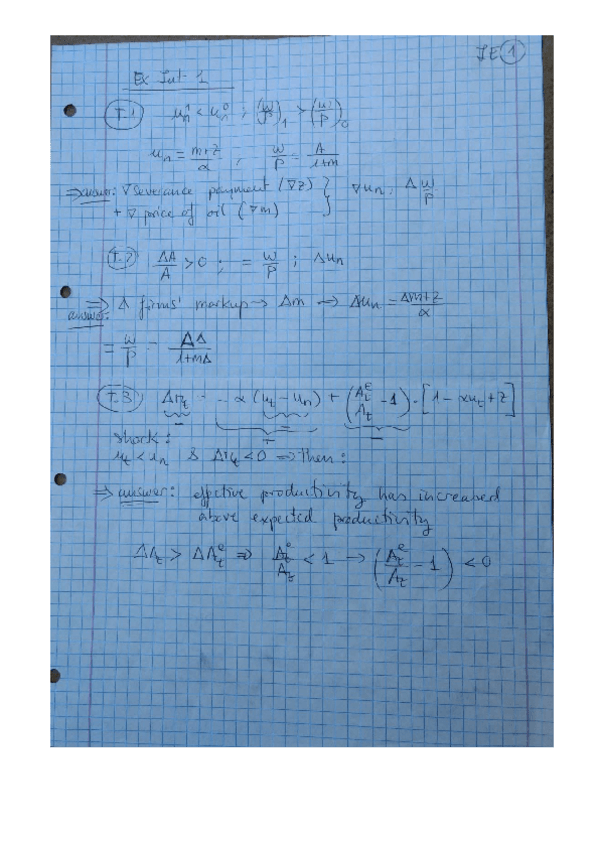 IE 1
Ex Int. 1
I.1 u_n^1 < u_n^0 ; (w/P)_1 > (w/P)_0
u_n = (m+z)/α ; w/P = A/(1+m)
⇒ answer: ∇ severance payment (∇z) } ∇u_n, Δ w/P
+ ∇ price of oil (∇m)
I.2 ΔA/A > 0 ; = w/P ; Δu_n
⇒ answer: Δ firms' markup → Δm → Δu_n = (Δm+z)/α
= w/P = AΔ/(1+mΔ)
I.3 Δπ_t = ... α (u_t − u_n) + (A_t^e/A_t − 1) · [1 − αu_t + z]
shock:
u_t < u_n & Δπ_t < 0 ⇒ Then:
⇒ answer: effective productivity has increased
above expected productivity
ΔA_t > ΔA_t^e ⇒ A_t^e/A_t < 1 → (A_t^e/A_t − 1) < 0